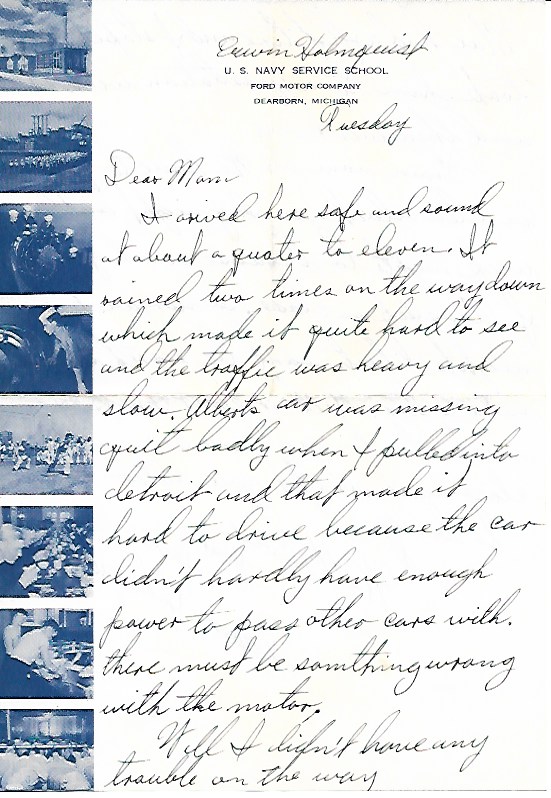 Erwin Holmquist
U. S. NAVY SERVICE SCHOOL
FORD MOTOR COMPANY
DEARBORN, MICHIGAN
Tuesday
Dear Mom
I arived here safe and sound
at about a quater to eleven. It
rained two times on the way down
which made it quite hard to see
and the traffic was heavy and
slow. Alberts car was missing
quit badly when I pulled into
detroit and that made it
hard to drive because the car
didn't hardly have enough
power to pass other cars with.
there must be somthing wrong
with the motor.
Well I didn't have any
trouble on the way